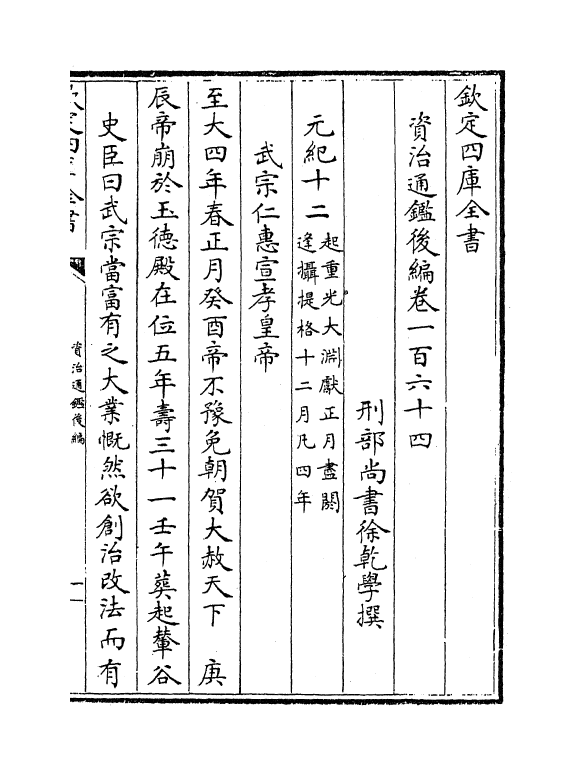 欽定四庫全書
資治通鑑後編卷一百六十四
刑部尚書徐乾學撰
元紀十二
起重光大淵獻正月盡閼
逢攝提格十二月凡四年
武宗仁惠宣孝皇帝
至大四年春正月癸酉帝不豫免朝賀大赦天下　庚
辰帝崩於玉德殿在位五年壽三十一壬午葬起輦谷
史臣曰武宗當富有之大業慨然欲創治改法而有
欽定四庫全書
資治通鑑後編
一